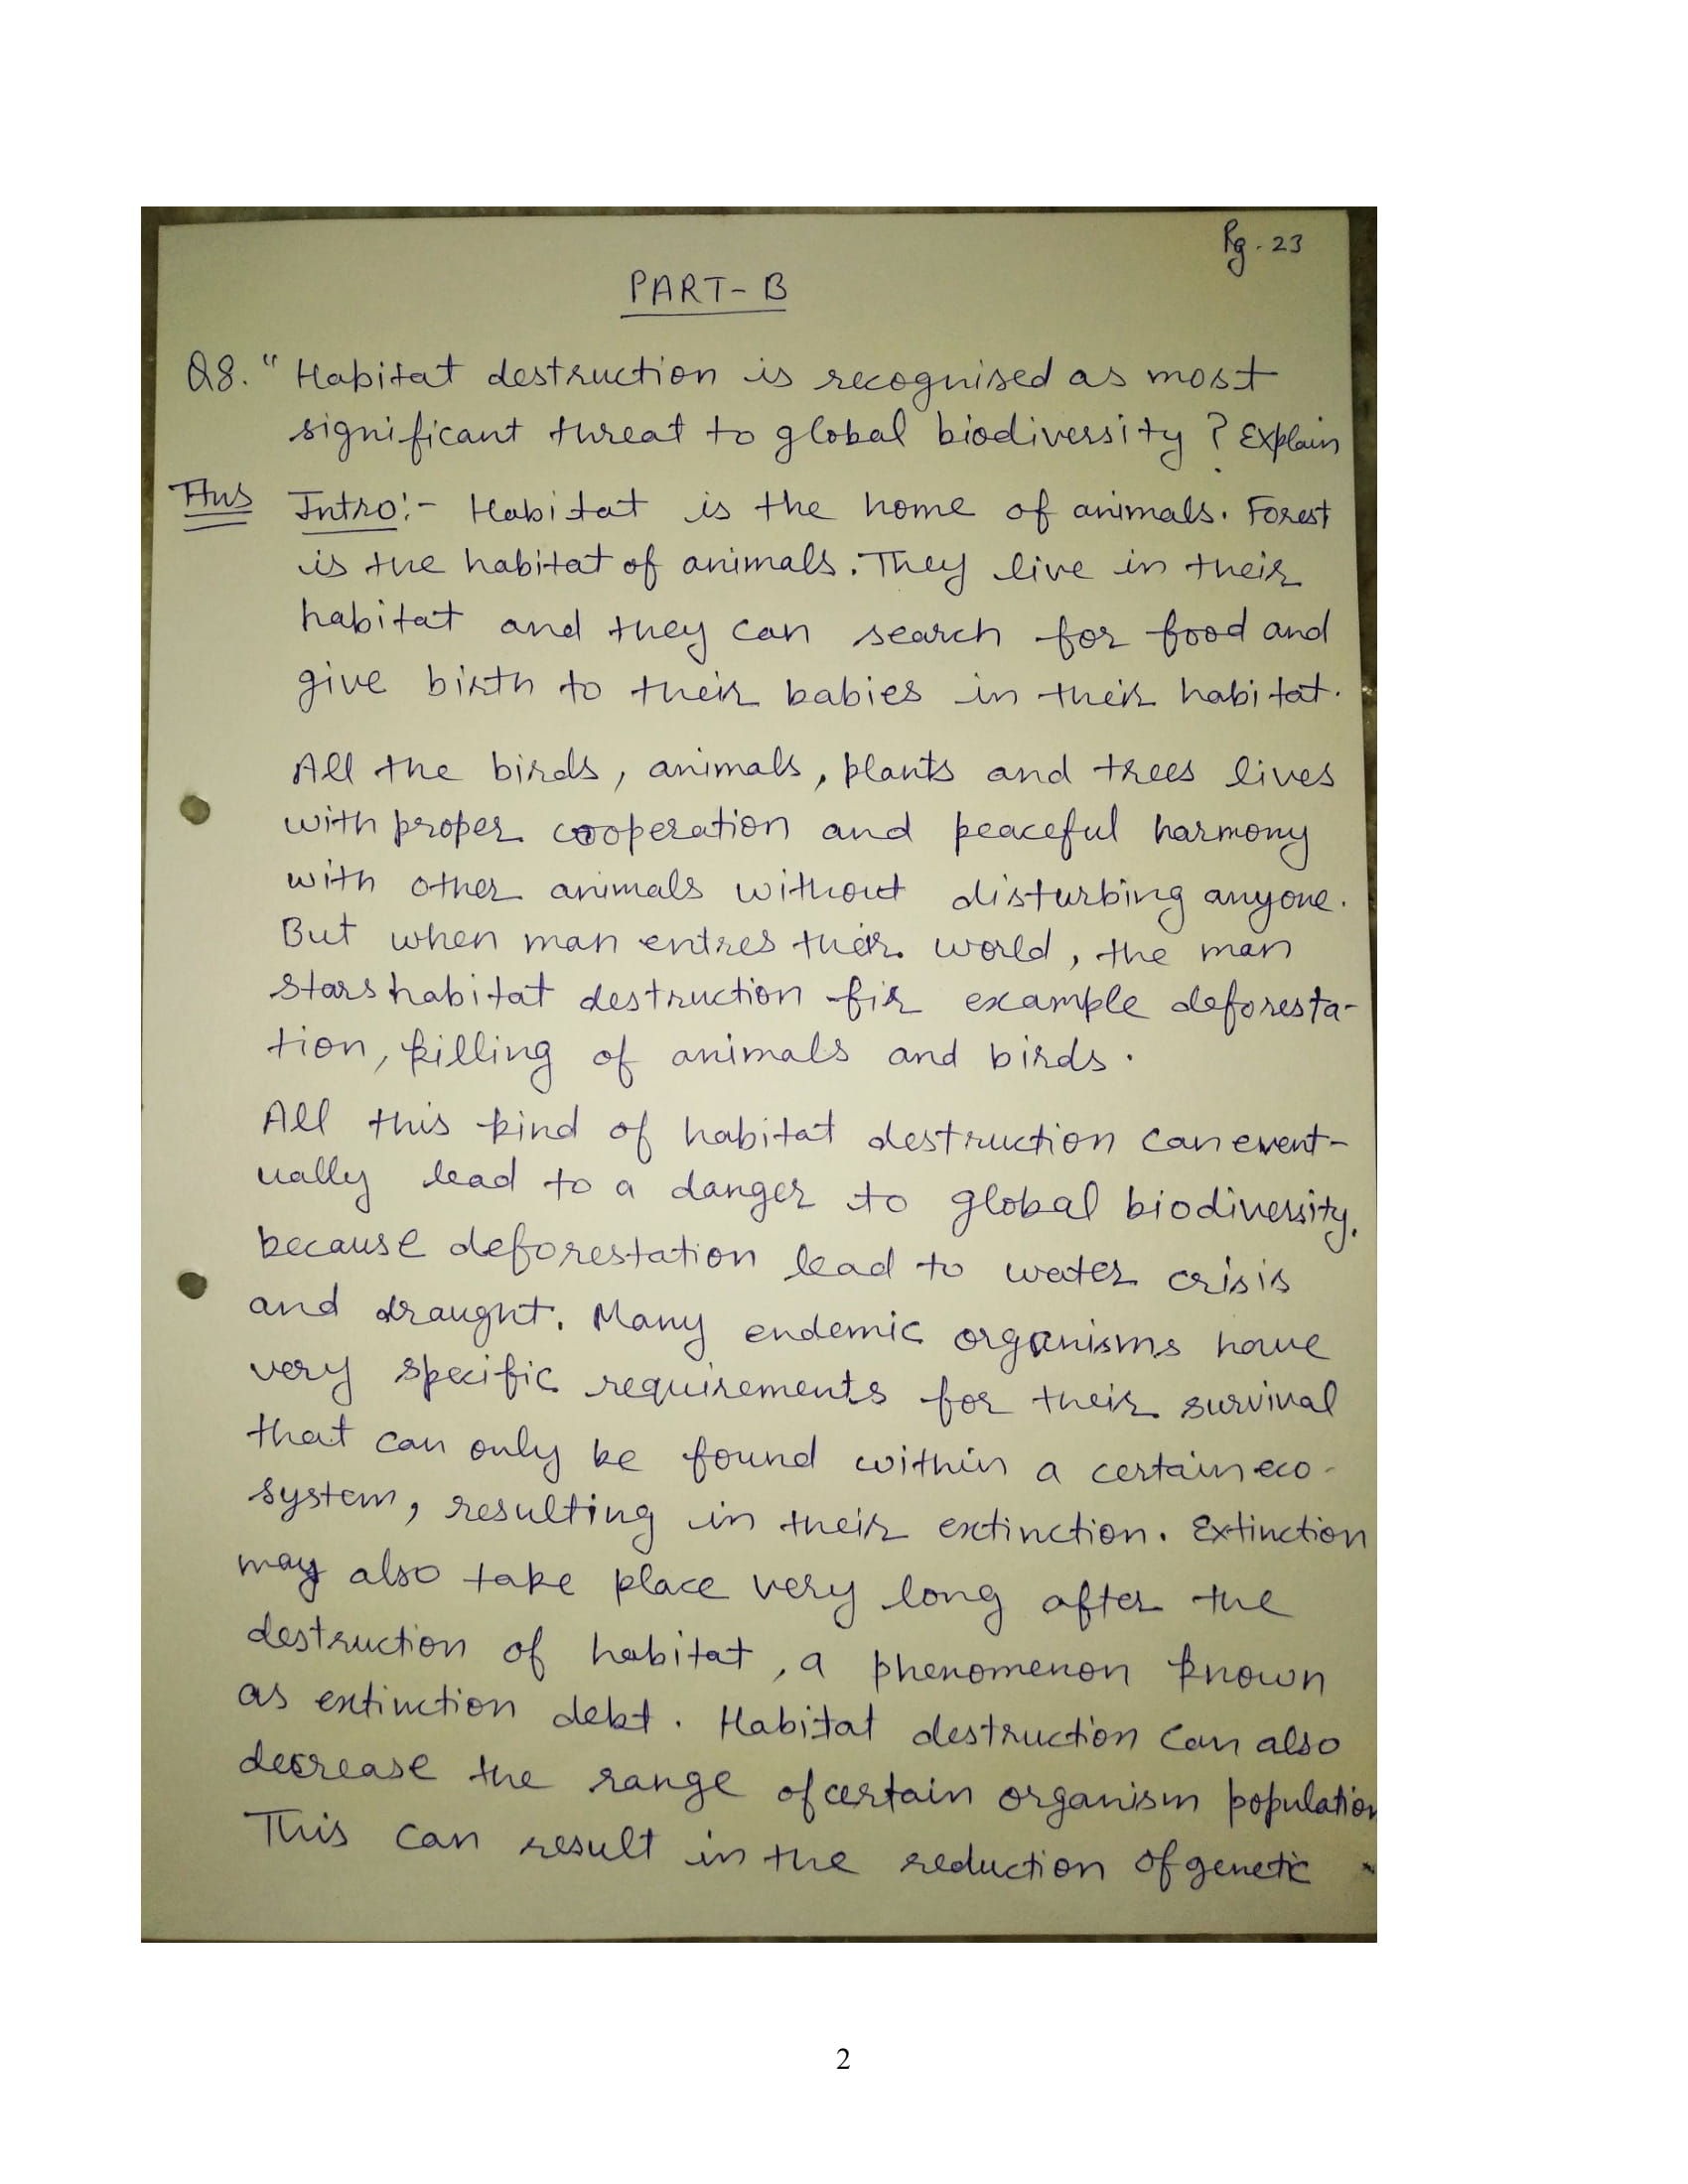 Pg. 23
PART-B
Q8. " Habitat destruction is recognised as most
significant threat to global biodiversity ? Explain
Ans Intro:- Habitat is the home of animals. Forest
is the habitat of animals. They live in their
habitat and they can search for food and
give birth to their babies in their habitat.
All the birds, animals, plants and trees lives
with proper cooperation and peaceful harmony
with other animals without disturbing anyone.
But when man entres their world, the man
stars habitat destruction fir example deforesta-
tion, killing of animals and birds.
All this kind of habitat destruction can event-
ually lead to a danger to global biodiversity,
because deforestation lead to water crisis
and draught. Many endemic organisms have
very specific requirements for their survival
that can only be found within a certain eco-
system, resulting in their extinction. Extinction
may also take place very long after the
destruction of habitat, a phenomenon known
as extinction debt. Habitat destruction can also
decrease the range of certain organism population
This can result in the reduction of genetic
2